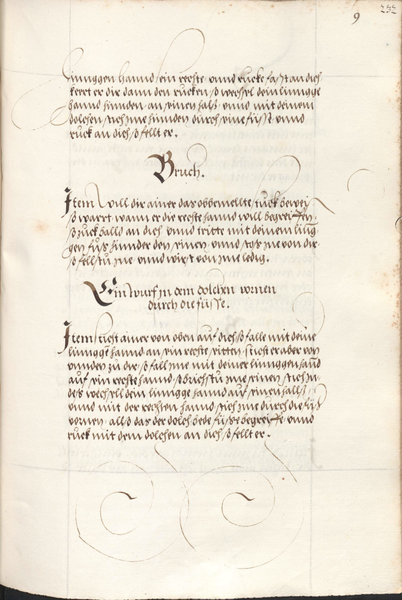 9
232
linnggen hannd sein rechte unnd rucke fast an dich
keret er dir dann den rucken so wechsel dein linngge
hannd hinnden an seinen halß unnd mit deinem
dolchen stich ime hinnden durch seine füß unnd
ruck an dich so fellt er.
Bruch.
Item will dir ainer das obbemellte stuck
so wart wann er dir rechte hannd will begreiffen
so zuck balld an dich unnd tritte mit deinem linng
gen fuß hinnder den seinen unnd von dir
so felstu ine unnd wirst von ime ledig.
Ein wurf in dem dolchen winen
durch die füsse.
Item sticht ainer von oben auf dich so falle mit deine
linngge hannd an sein rechte sticht er aber von
unnden zu dir so fall ime mit deiner linnggen hand
auf sein rechte hannd so brichstu ime seinen stich in
des wechsel dein linngge hannd auf seinen halß
unnd mit der rechten hannd stich ime durch die fuß
vornen also das der dolch bede füß begreiffe unnd
ruck mit dem dolchen an dich so fellt er.